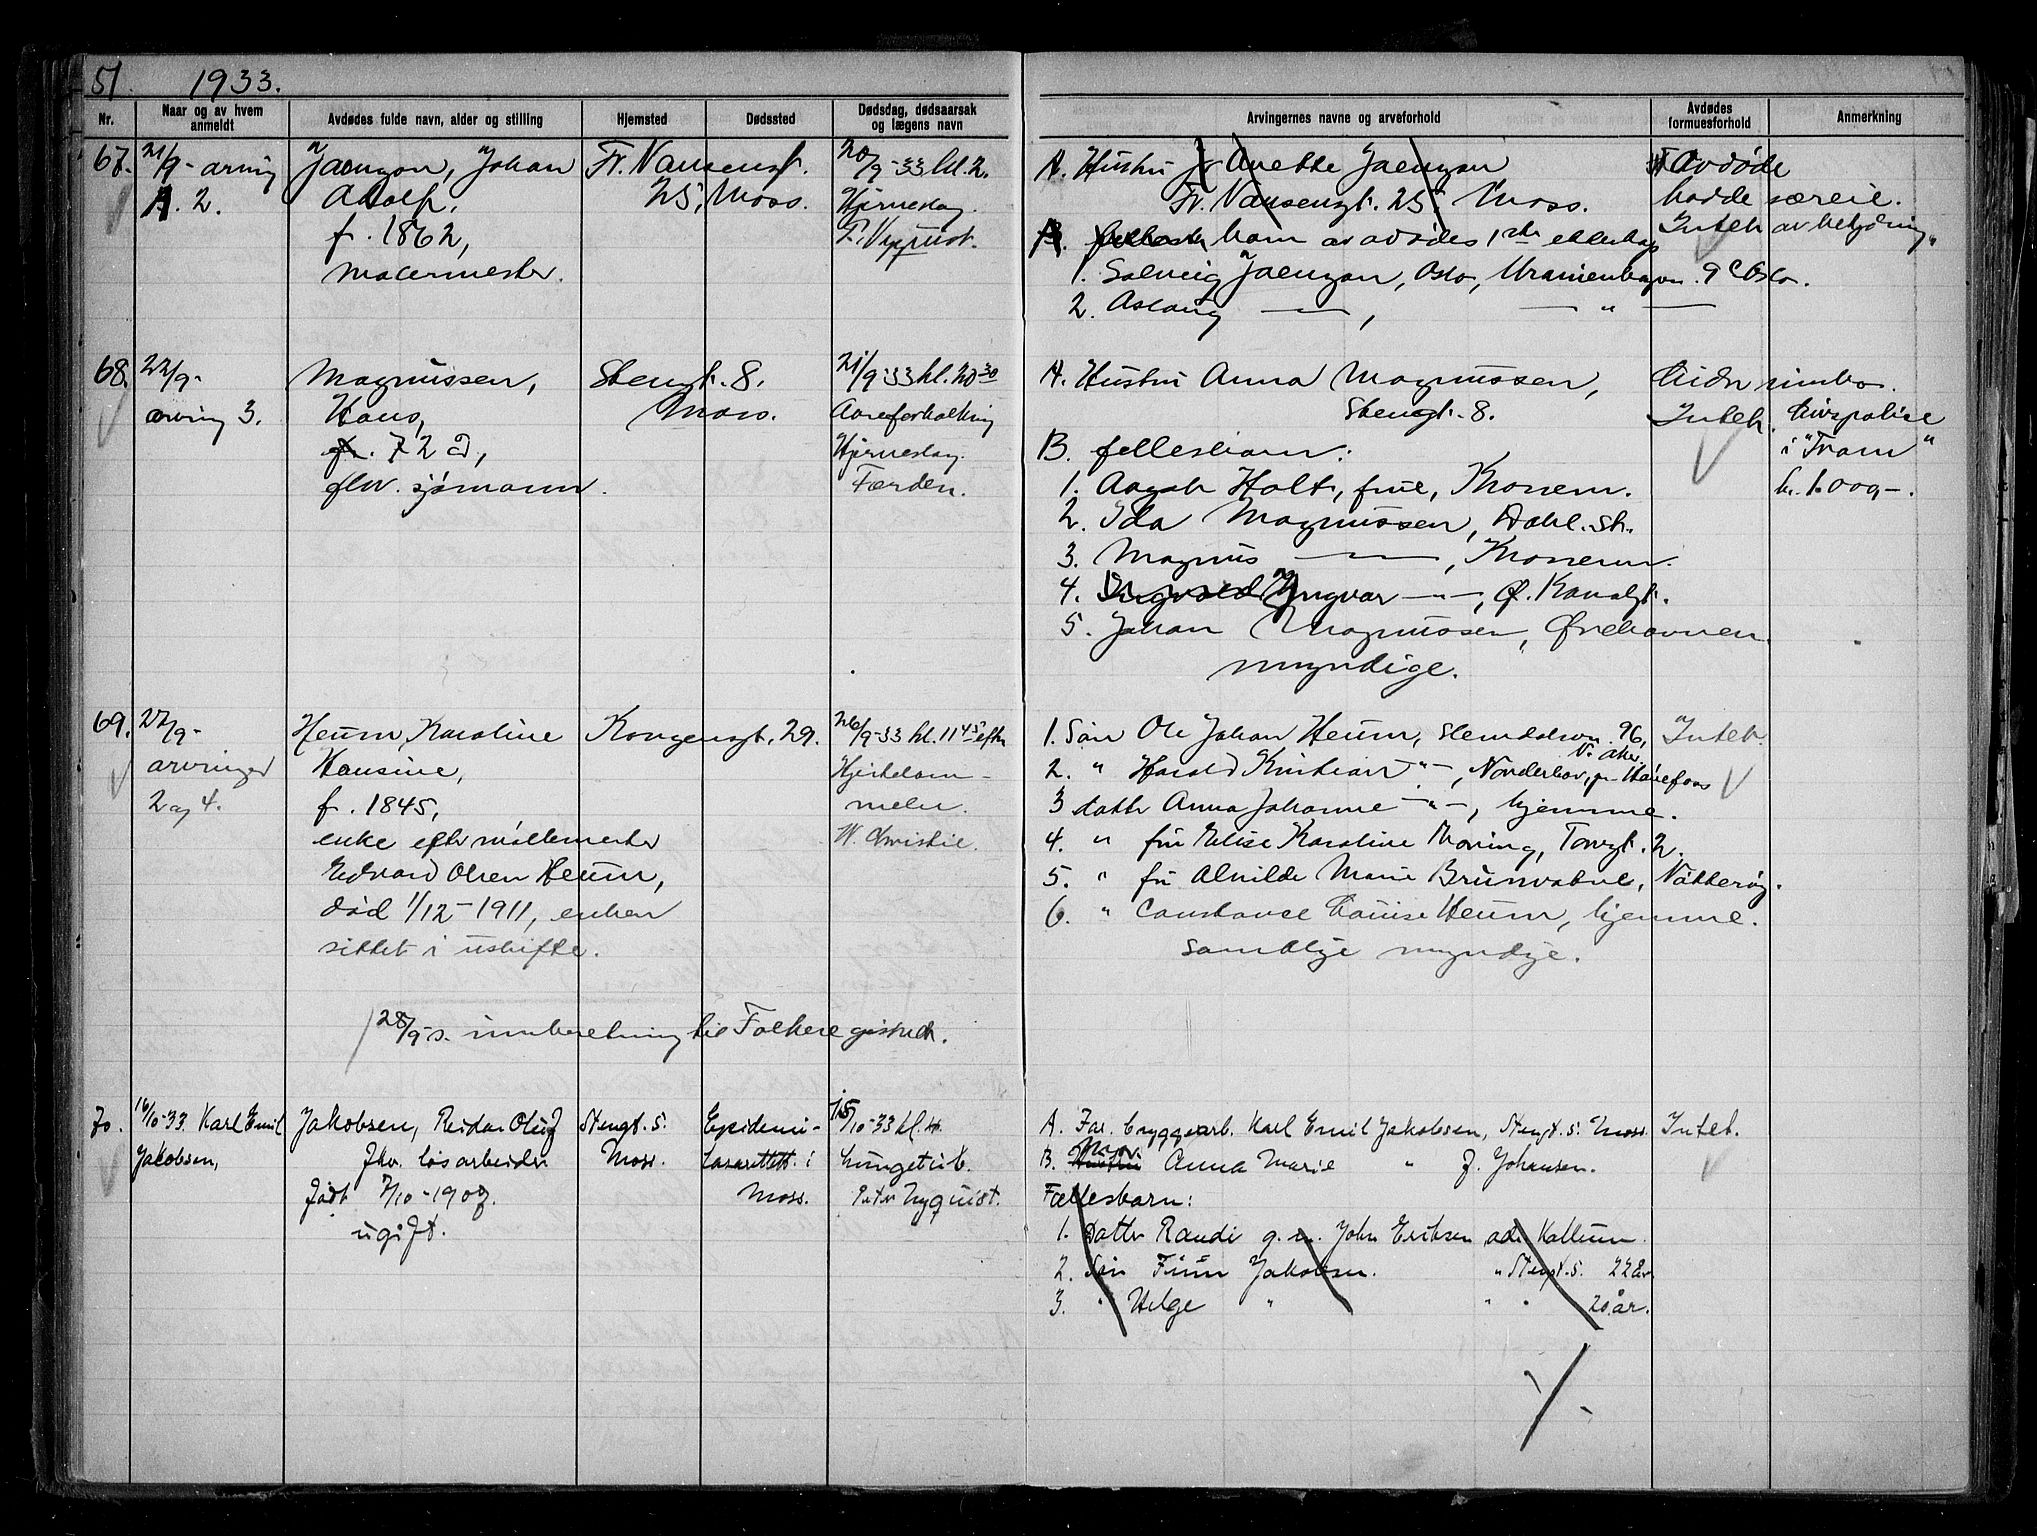 51. 1933.
Nr.
Naar og av hvem anmeldt
Avdødes fulde navn, alder og stilling
Hjemsted
Dødssted
Dødsdag, dødsaarsak og lægens navn
Arvingernes navne og arveforhold
Avdødes formuesforhold
Anmerkning
67.
21/9- arving
A. 2.
Jaenzon, Johan
Adolf,
f. 1862,
malermester.
Fr. Nansensgt.
25, Moss.
20/9-33 kl. 2.
Hjerneslag.
A. Hustru Anette Jaenzon
Fr. Nansensgt. 25. Moss.
barn av avdødes 1ste ekteskap
1. Solveig Jaenzon, Oslo, Uranienborgvn. 9c Oslo.
2. Aslaug — " —, — " —
Avdøde
hadde særeie.
Intet av betydning
68.
22/9-
arving 3.
Magnussen,
Hans,
72 a,
fhv. sjømann.
Stengt. 8.
Moss.
21/9-33 kl. 20 30
Aareforkalkning
Hjerneslag.
Færden.
A. Hustru Anna Magnussen,
Stengt. 8.
B. fellesbarn:
1. Aagot Holt, frue, Krossern.
2. Ida Magnussen, Dahl. st.
3. Magnus — " —, Krossern.
4. Ingvald Yngvar — " —, Ø. Kanalgt.
5. Johan Magnussen, Ørehavnen.
myndige.
Uidn
Intet.
Livspolise
i "Fram"
kr. 1.000,-.
69.
27/9-
arvinger
2 og 4.
Heum, Karoline
Hansine,
f. 1845,
enke efter møllemester
Edvard Olsen Heum,
død 1/12-1911, enken
sittet i uskifte.
Kongensgt. 29.
26/9-33 kl. 11 45 efter
Hjertelam-
melse.
W. Christie.
1. Søn Ole Johan Heum, Slemdalsvn. 96,
V. Aker
2. " Harald Kristian — " —, Norderhov, pr Hønefoss
3 datter Anna Johanne — " —, hjemme.
4. " fru Elise Karoline Thoning, Torvgt. 2.
5. " fru Alvilde Marie Brunvatne, Nøtterøy.
6. " Constance Louise Heum, hjemme.
samtlige myndige.
Intet.
28/9-s. innberetning til Folkeregistret.
70.
16/10-33 Karl Emil
Jakobsen,
Jakobsen, Reidar Oluf
fhv. løsarbeider
født 7/10-1907.
ugift.
Stengt. 5.
Moss.
Epidemi-
lasarettet i
Moss.
15/10-33 kl. 10.
Lungetub.
Peter Nyquist.
A. Far. bryggearb. Karl Emil Jakobsen, Stengt. 5. Moss
B. Hustru Mor. Anna Marie " f. Johansen.
Fællesbarn:
1. Datter Randi g. m. John Eriksen adr. Kallum.
2. Søn Finn Jakobsen. " Stengt. 5. 22 år
3. " Helge " " " 20 år.
Intet.